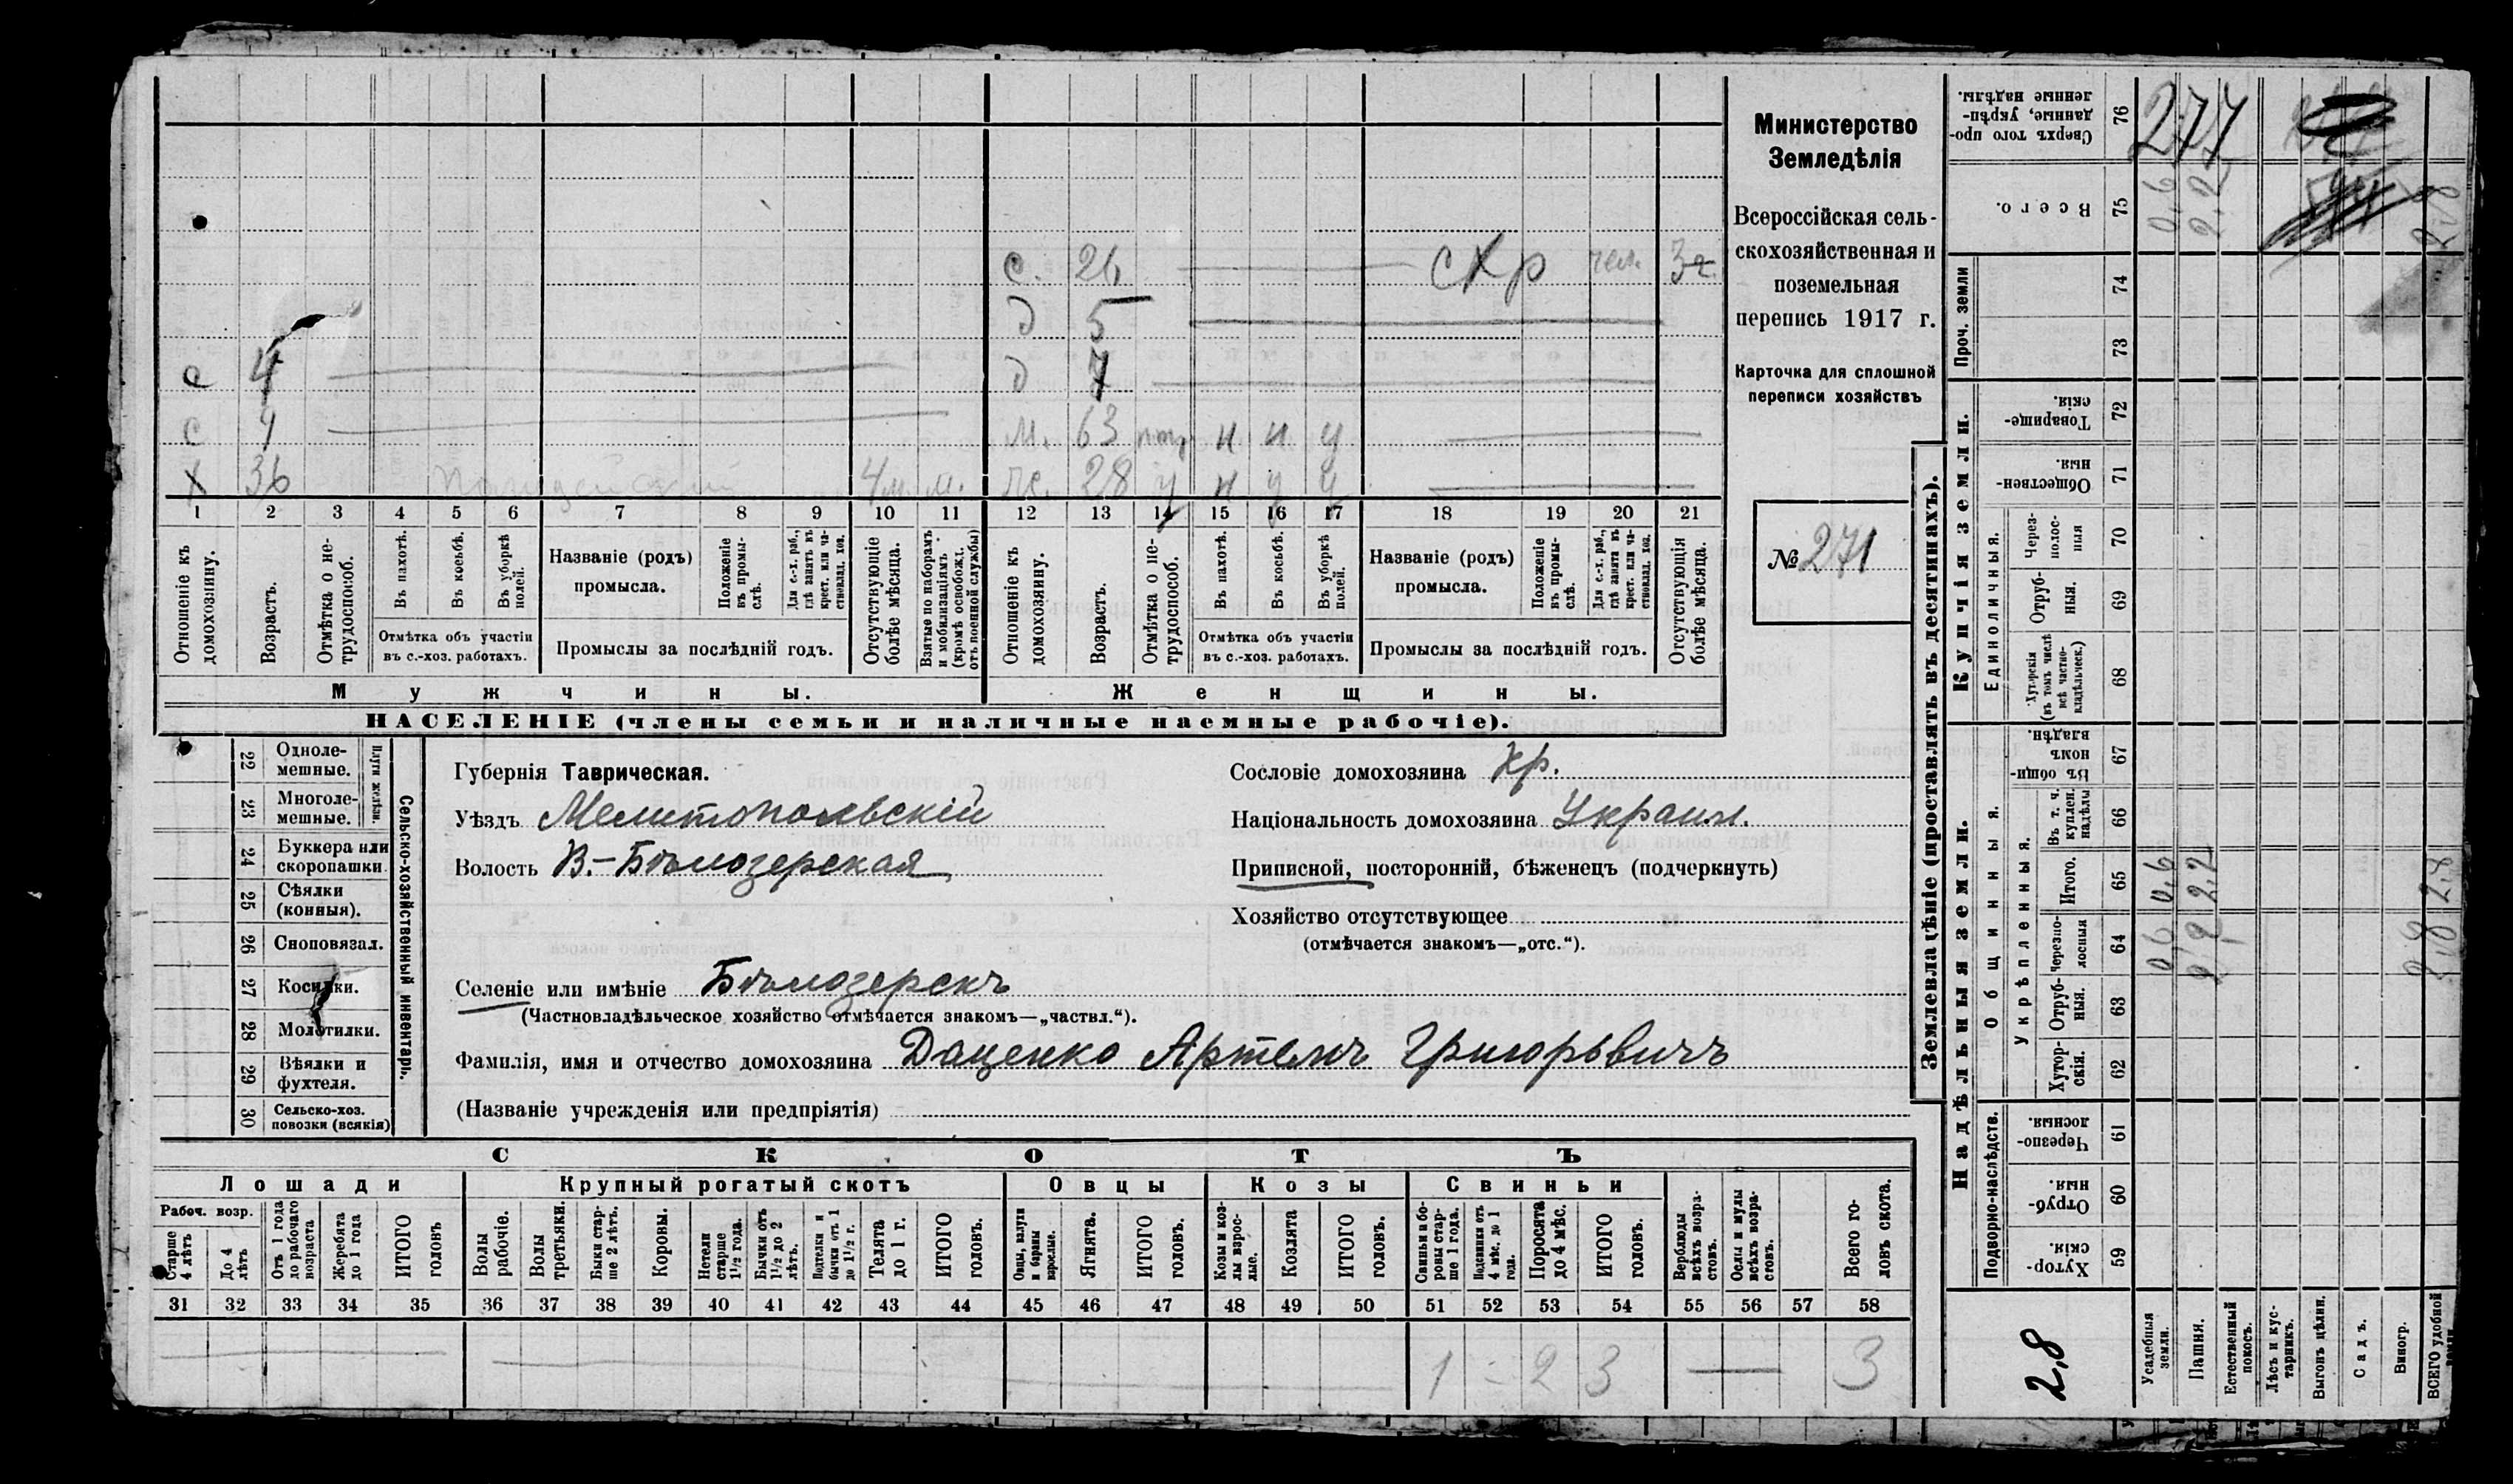 с. 26 — схр чел. 3 г.
д 5
с 4 д 7
с 4 м. 63 н н у
х 36 4 м. м. ж. 28 у н у у
1 2 3 4 5 6 7 8 9 10 11 12 13 14 15 16 17 18 19 20 21
Отношеніе къ домохозяину.
Возрастъ.
Отмѣтка о не-трудоспособ.
Въ пахотѣ.
Въ косьбѣ.
Въ уборкѣ полей.
Отмѣтка объ участіи
въ с.-хоз. работахъ.
Названіе (родъ)
промысла.
Положеніе въ промы-слѣ.
Для с.-х. раб., гдѣ занятъ въ крест. или ча-стновлад. хоз.
Промыслы за послѣдній годъ.
Отсутствующіе болѣе мѣсяца.
Взятые по наборамъ и мобилизаціямъ (кромѣ освобожд. отъ военной службы)
Отношеніе къ домохозяину.
Возрастъ.
Отмѣтка о не-трудоспособ.
Въ пахотѣ.
Въ косьбѣ.
Въ уборкѣ полей.
Отмѣтка объ участіи
въ с.-хоз. работахъ.
Названіе (родъ)
промысла.
Положеніе въ промы-слѣ.
Для с.-х. раб., гдѣ занятъ въ крест. или ча-стновлад. хоз.
Промыслы за послѣдній годъ.
Отсутствующія болѣе мѣсяца.
Мужчины. Женщины.
НАСЕЛЕНІЕ (члены семьи и наличные наемные рабочіе).
Министерство
Земледѣлія
Всероссійская сель-
скохозяйственная и
поземельная
перепись 1917 г.
Карточка для сплошной
переписи хозяйствъ
№ 271
22 Одноле-мешные.
23 Многоле-мешные.
Плуги желѣзн
24 Буккера или скоропашки
25 Сѣялки (конныя).
26 Сноповязал.
27 Косилки.
28 Молотилки.
29 Вѣялки и фухтеля.
30 Сельско-хоз. повозки (всякія)
Сельско-хозяйственный инвентарь.
Губернія Таврическая.
Уѣздъ Мелитопольскій
Волость В.-Бѣлозерская
Селеніе или имѣніе Бѣлозерскъ
(Частновладѣльческое хозяйство отмѣчается знакомъ—„частвл.“).
Фамилія, имя и отчество домохозяина Даценко Артемъ Григорьвичъ
(Названіе учрежденія или предпріятія)
Сословіе домохозяина Кр.
Національность домохозяина Украин.
Приписной, посторонній, бѣженецъ (подчеркнуть)
Хозяйство отсутствующее
(отмѣчается знакомъ—„отс.“).
СКОТЪ
Лошади Крупный рогатый скотъ Овцы Козы Свиньи
Рабоч. возр.
Старше 4 лѣтъ
До 4 лѣтъ
Отъ 1 года до рабочаго возраста
Жеребята до 1 года
ИТОГО головъ
Волы рабочіе.
Волы третьяки.
Быки стар-ше 2 лѣтъ.
Коровы.
Нетели старше 1 1/2 года.
Бычки отъ 1 1/2 до 2 лѣтъ.
Подтелки и бычки отъ 1 до 1 1/2 г.
Телята до 1 г.
ИТОГО головъ.
Овцы, валухи и бараны взрослые.
Ягнята.
ИТОГО головъ.
Козы и коз-лы взрос-лые.
Козлята
ИТОГО головъ.
Свиньи и бо-ровы стар-ше 1 года.
Подсвинки отъ 4 мѣс. до 1 года.
Поросята до 4 мѣс.
ИТОГО головъ.
Верблюды всѣхъ возра-стовъ.
Ослы и мулы всѣхъ возра-стовъ.
Всего го-ловъ скота.
31 32 33 34 35 36 37 38 39 40 41 42 43 44 45 46 47 48 49 50 51 52 53 54 55 56 57 58
1 - 2 3 — 3
Землевладѣніе (проставлять въ десятинахъ).
Купчія земли.
Надѣльныя земли.
Сверхъ того про-данные, укрѣп-ленные надѣлы. 76 277
Всего. 75 0,6 2,2 2,8
Проч. земли 74 73
Товарище-скія. 72
Обществен-ныя. 71
Единоличныя.
Через-полос-ныя 70
Отруб-ныя. 69
Хуторскія (въ томъ числѣ всѣ частно-владѣльческ.) 68
Общинныя.
Въ общи-номъ владѣн. 67
Укрѣпленныя.
Въ т. ч. куплен. надѣлы 66
Итого. 65 0,6 2,2 2,8
Черезпо-лосныя 64 0,6 2,2 2,8
Отруб-ныя. 63
Хутор-скія. 62
Подворно-наслѣдств.
Черезпо-лосныя. 61
Отруб-ныя. 60
Хутор-скія. 59
2,8
Усадебныя земли.
Пашня.
Естественный покосъ.
Лѣсъ и кус-тарникъ.
Выгонъ цѣлин.
Садъ.
Виногр.
ВСЕГО удобной